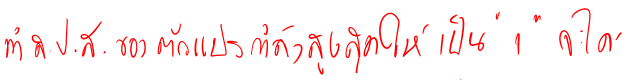 ทำ ส.ป.ส. ของ ตัวแปร กำลังสูงสุดให้ เป็น " 1 " จะได้